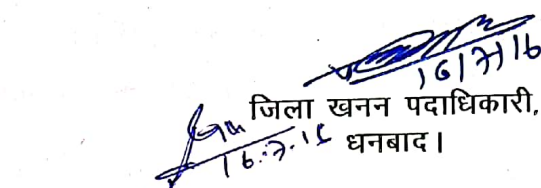 16/7/16
जिला खनन पदाधिकारी,
16.7.16 धनबाद।